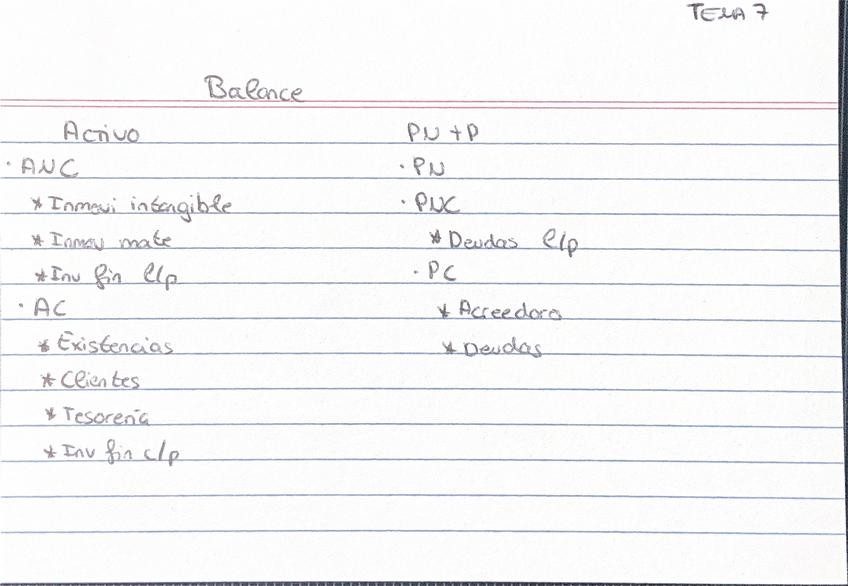 TEMA 7
Balance
Activo PN + P
· ANC · PN
* Inmovi intangible · PNC
* Inmov mate * Deudas l/p
* Inv fin l/p · PC
· AC * Acreedora
* Existencias * Deudas
* Clientes
* Tesorería
* Inv fin c/p